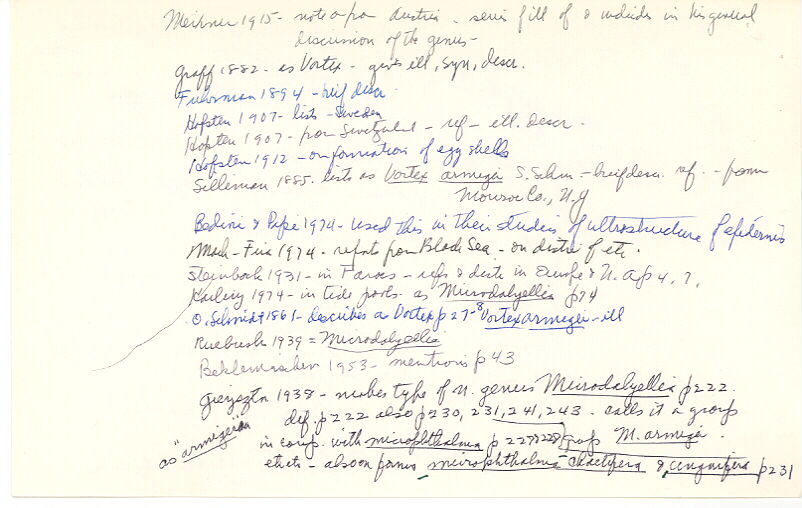 Meixner 1915 - note on from Austria - series fill of & includes in his general
discussion of the genus -
Graff 1882 - as Vortex - gives ill, syn, descr.
Fuhrman 1894 - brief descr
Hofsten 1907 - lists - Sweden
Hofsten 1907 - from Switzerland - ref - ill. descr.
Hofsten 1912 - on formation of egg shells
Silliman 1885. lists as Vortex armegi S. Schm - brief descr. ref. - from
Monroe Co., N.Y
Bedini & Papi 1974 - used this in their studies of ultrastructure of epidermis
Mack-Fira 1974 - reports from Black Sea - on distr etc.
Steinbock 1931 - in Faroes - refs & distr in Europe & N. A p 4, 7,
Karling 1974 - in tide pools as Microdalyellia p 74
O. Schmidt 1861 - describes as Vortex p 27-8 Vortex armegi - ill
Ruebush 1939 = Microdalyellia
Beklemischev 1953 - mentions p 43
Gieysztor 1938 - makes type of n. genus Microdalyellia p 222.
def. p 222 also p 230, 231, 241, 243 - calls it a group
as "armigera" in comp. with microphthalma p 227, 228 group M. armegi.
etects - also on forms microphthalma - chaetifera & cuspifera p 231